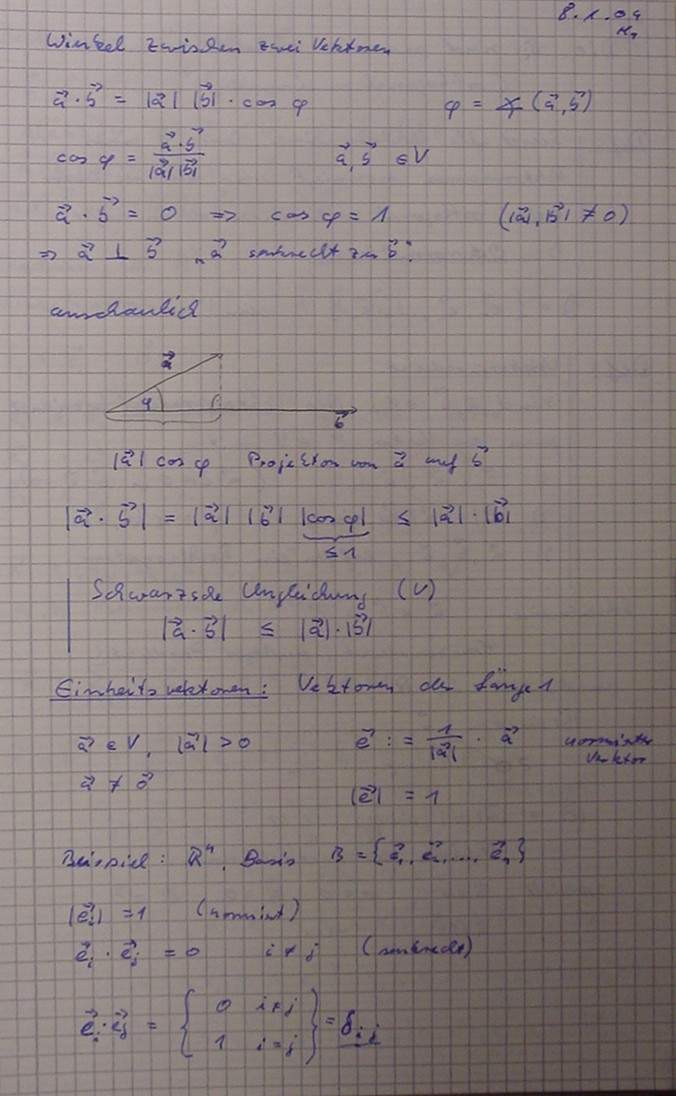 8.1.04
Winkel zwischen zwei Vektoren
a⃗ · b⃗ = |a⃗| |b⃗| · cos φ φ = ∡ (a⃗, b⃗)
cos φ = a⃗ · b⃗ / |a⃗| |b⃗| a⃗, b⃗ ∈ V
a⃗ · b⃗ = 0 => cos φ = 1 (|a⃗|, |b⃗| ≠ 0)
=> a⃗ ⊥ b⃗ „a⃗ senkrecht zu b⃗".
anschaulich
a⃗
φ
b⃗
|a⃗| cos φ Projektion von a⃗ auf b⃗
|a⃗ · b⃗| = |a⃗| |b⃗| |cos φ| ≤ |a⃗| · |b⃗|
≤ 1
Schwarzsche Ungleichung (V)
|a⃗ · b⃗| ≤ |a⃗| · |b⃗|
Einheitsvektoren: Vektoren der Länge 1
a⃗ ∈ V, |a⃗| > 0 e⃗ := 1/|a⃗| · a⃗ normierter
Vektor
a⃗ ≠ 0⃗ |e⃗| = 1
Beispiel: ℝⁿ, Basis B = {e⃗₁, e⃗₂, ..., e⃗ₙ}
|e⃗ᵢ| = 1 (normiert)
e⃗ᵢ · e⃗ⱼ = 0 i ≠ j (senkrecht)
e⃗ᵢ · e⃗ⱼ = { 0 i ≠ j
1 i = j } = δᵢⱼ